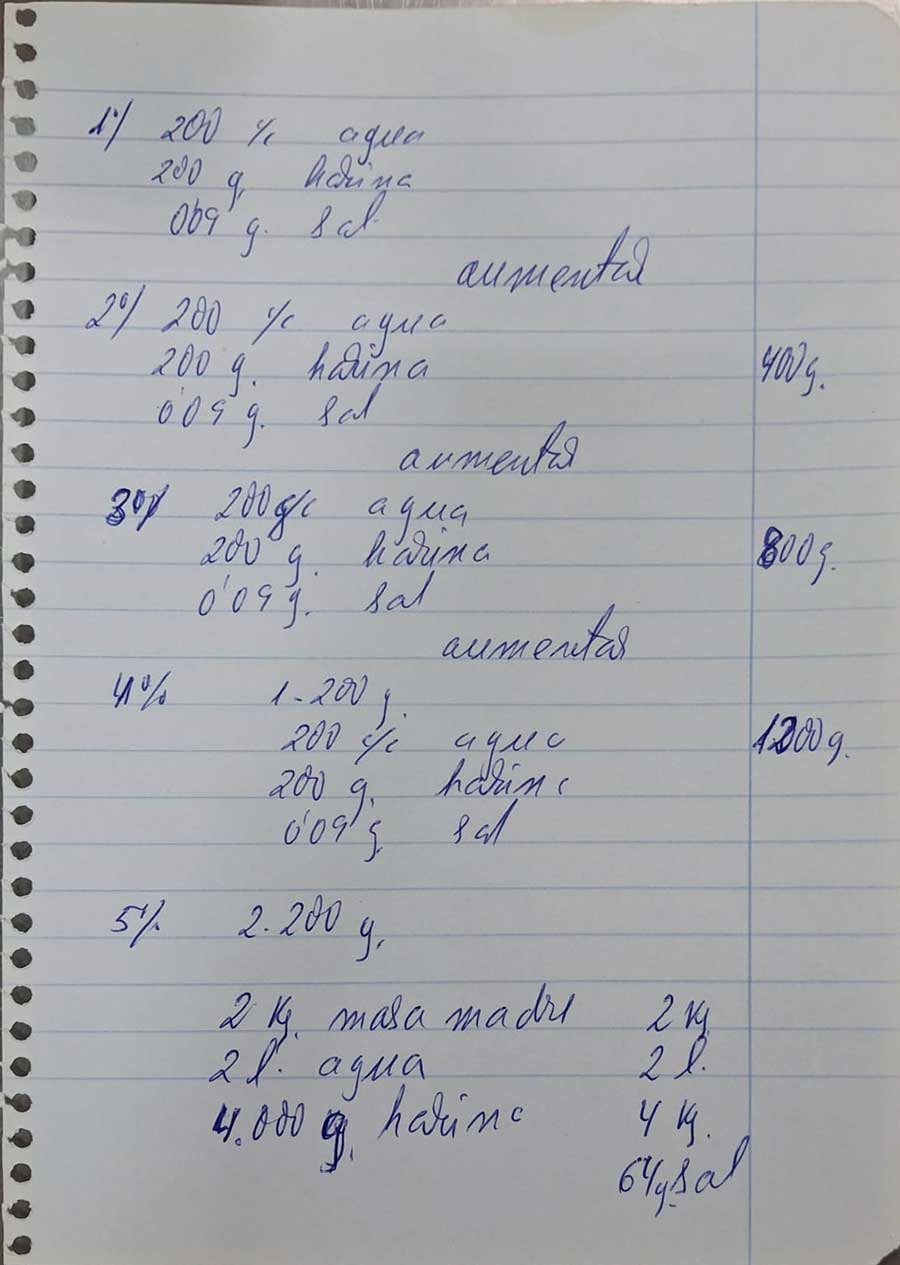 1º/ 200 c/c agua
200 g. harina
0'09 g. sal
aumentar
2º/ 200 c/c agua
200 g. harina 400 g.
0'09 g. sal
aumentar
3º/ 200 c/c agua
200 g. harina 800 g.
0'09 g. sal
aumentar
4º/ 1.200 g.
200 c/c agua 1200 g.
200 g. harina
0'09 g. sal
5º/. 2.200 g.
2 Kg. masa madre 2 Kg.
2 l. agua 2 l.
4.000 g. harina 4 Kg.
64 g. sal